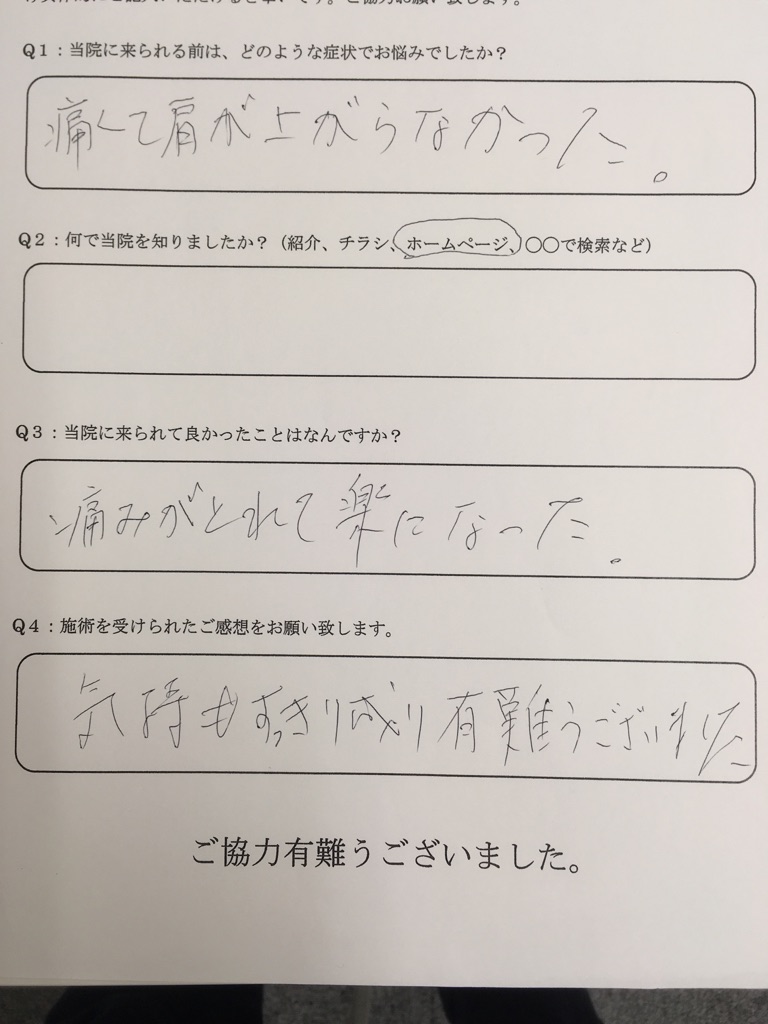 Q1：当院に来られる前は、どのような症状でお悩みでしたか？
痛くて肩が上がらなかった。
Q2：何で当院を知りましたか？（紹介、チラシ、ホームページ、〇〇で検索など）
Q3：当院に来られて良かったことはなんですか？
痛みがとれて楽になった。
Q4：施術を受けられたご感想をお願い致します。
気持もすっきり成り有難うございました
ご協力有難うございました。